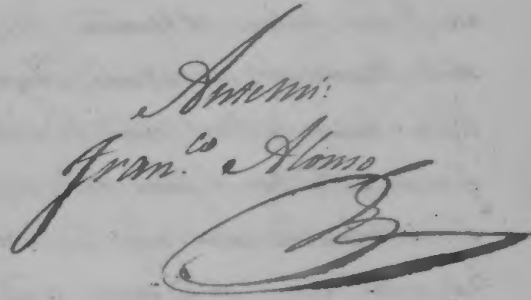 Antemi:
Fran.co Alonso